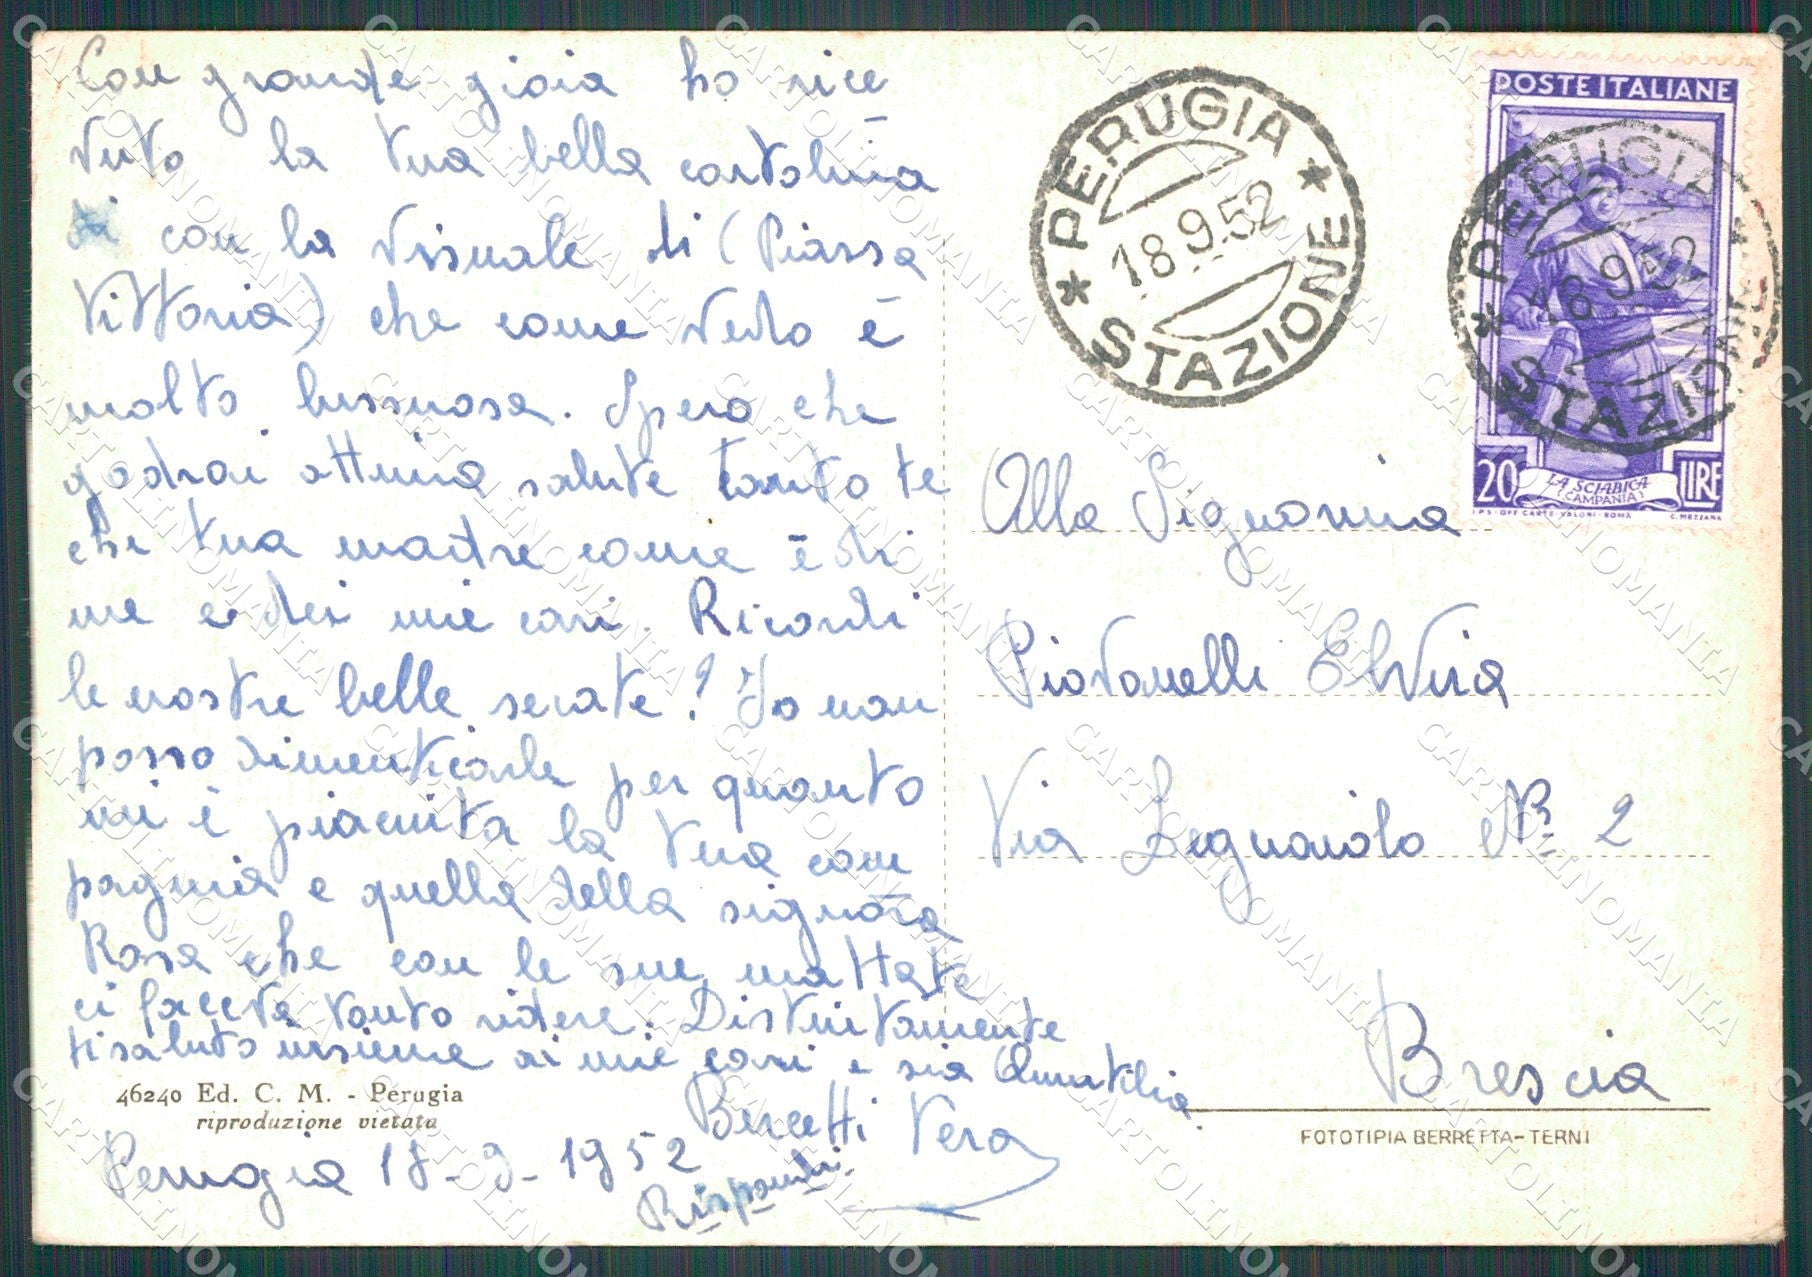 Con grande gioia ho rice
vuto la tua bella cartolina
con la visuale di (Piassa
Vittoria) che come vedo è
molto lussuosa. Spero che
godrai ottima salute tanto te
che tua madre come è di
me e dei miei cari. Ricordi
le nostre belle serate? Io non
posso dimenticarle per quanto
mi è piaciuta la tua com
pagnia e quella della signora
Rosa che con le sue mattate
ci faceva tanto ridere. Distintamente
ti saluto insieme ai miei cari e zia
Bercetti Vera
Rispondi.
46240 Ed. C. M. - Perugia
riproduzione vietata
Perugia 18-9-1952
PERUGIA
18.9.52
STAZIONE
POSTE ITALIANE
PERUGIA
18.9.52
STAZIONE
20 LA SCIABICA LIRE
(CAMPANIA)
I.P.S.-OFF. CARTE-VALORI-ROMA C. MEZZANA
Alla Signorina
Piovanelli Elvira
Via Legnaiolo Nº 2
Brescia
FOTOTIPIA BERRETTA-TERNI
CARTOLINOMANIA